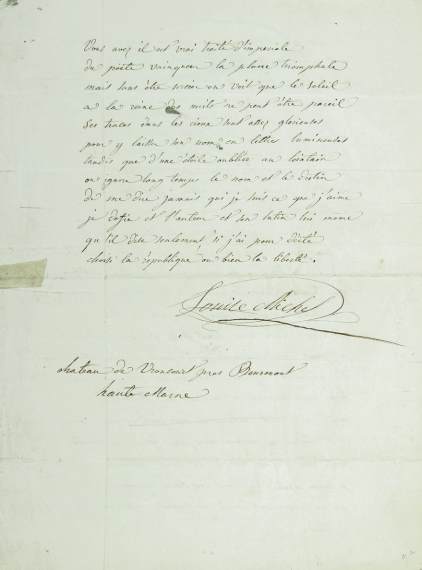 Vous avez il est vrai traité d'imperiale
du poëte vainqueur la plume triomphale
mais sans être sorcier on voit que le soleil
a la reine des nuits ne peut être pareil
Ses traces dans les cieux sont assez glorieuses
pour y laisser son nom en lettres lumineuses
tandis que d'une étoile oubliée au lointain
on ignore long temps le nom et le destin
de me dire jamais qui je suis ce que j'aime
je defie et l'auteur et son lutin lui meme
qu'il dise seulement, si j'ai pour déité
choisi la république ou bien la liberté.
Louise Michel
chateau de Vroncourt près Bourmont
haute Marne